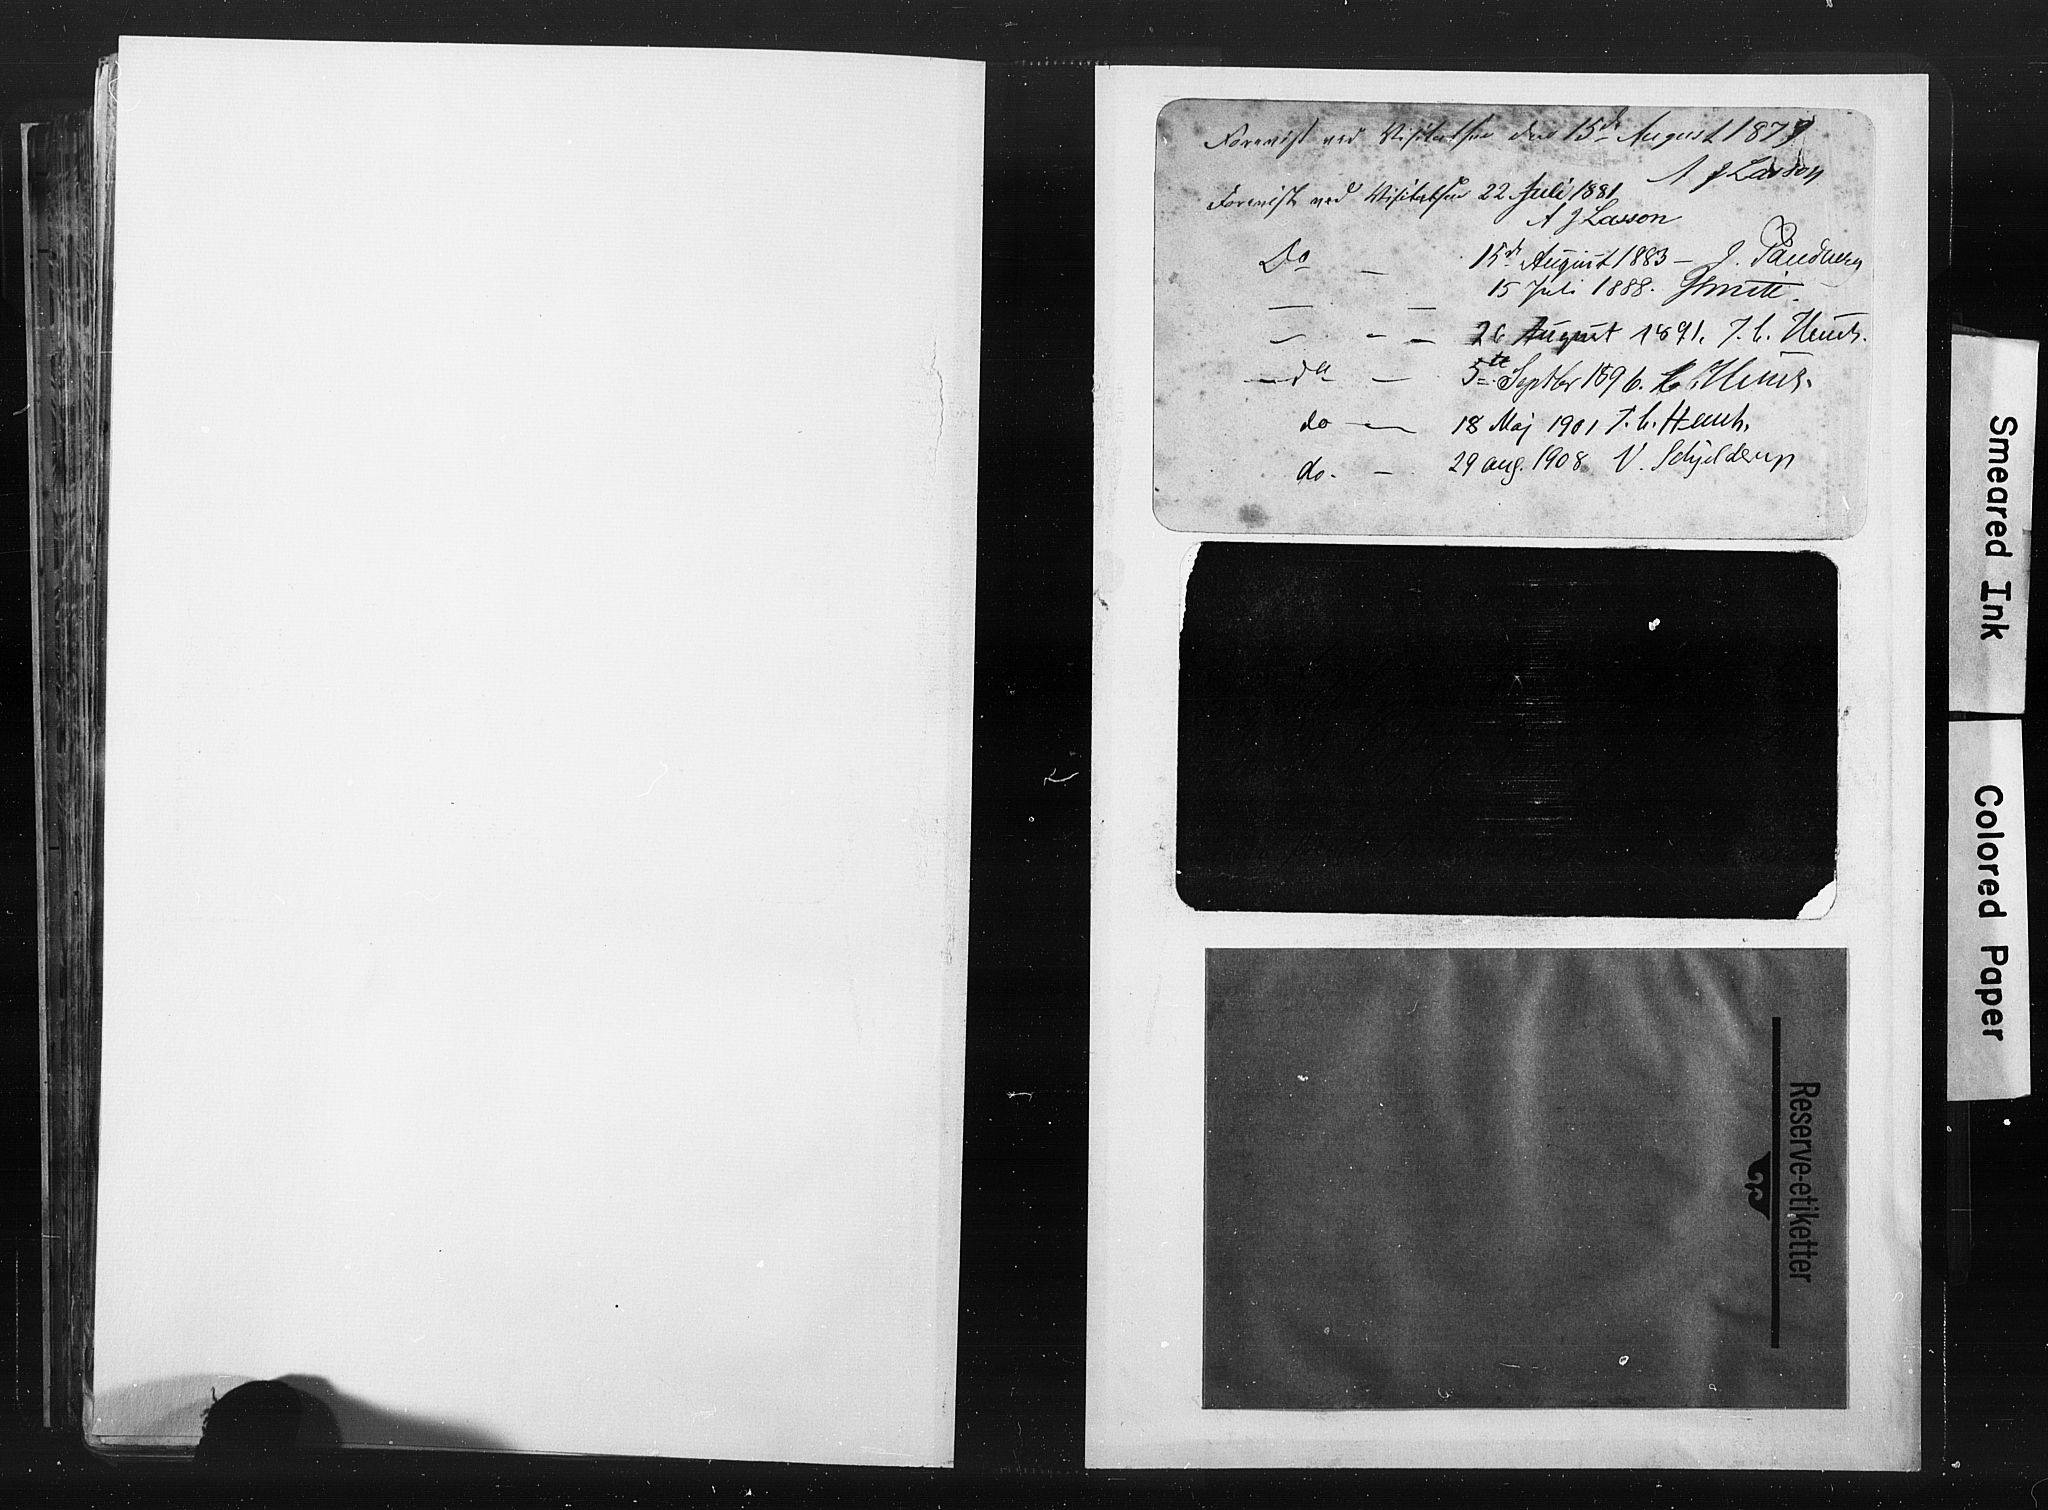 Forevist ved Visitatsen den 15de August 1879
A J Lasson
Forevist ved Visitatsen 22 Juli 1881
A J Lasson
Do — 15de August 1883 – J.
— — 15 Juli 1888.
— - — 26 August 1891. J. C. Heuch.
— do — 5te Septbr 1896. Heuch.
do — 18 Maj 1901 J. C. Heuch.
do. — 29 aug. 1908 V. Schjelderup
Reserve-etiketter
Smeared Ink
Colored Paper